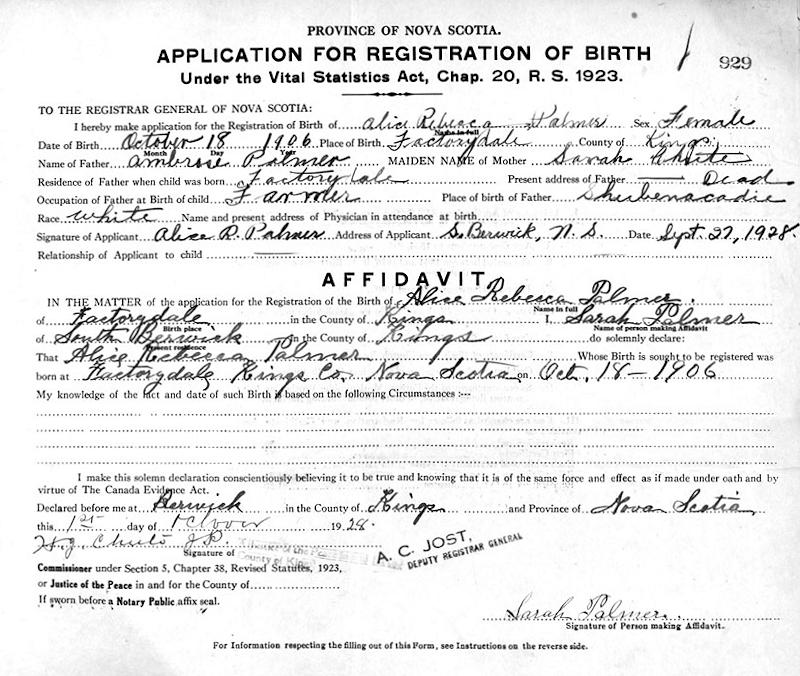 PROVINCE OF NOVA SCOTIA.
APPLICATION FOR REGISTRATION OF BIRTH
929
Under the Vital Statistics Act, Chap. 20, R. S. 1923.
TO THE REGISTRAR GENERAL OF NOVA SCOTIA:
I hereby make application for the Registration of Birth of Alice Rebecca Palmer Sex Female
Name in full
Date of Birth October 18 1906 Place of Birth Factorydale County of Kings
Month Day Year
Name of Father Ambrose Palmer MAIDEN NAME of Mother Sarah White
Residence of Father when child was born Factorydale Present address of Father Dead
Occupation of Father at Birth of child Farmer Place of birth of Father Shubenacadie
Race white Name and present address of Physician in attendance at birth
Signature of Applicant Alice R. Palmer Address of Applicant S. Berwick, N. S. Date Sept. 27, 1928.
Relationship of Applicant to child
AFFIDAVIT
IN THE MATTER of the application for the Registration of the Birth of Alice Rebecca Palmer.
Name in full
of Factorydale in the County of Kings I, Sarah Palmer
Birth place Name of person making Affidavit
of South Berwick in the County of Kings do solemnly declare:
Present residence
That Alice Rebecca Palmer Whose Birth is sought to be registered was
born at Factorydale Kings Co. Nova Scotia on Oct. 18 - 1906
My knowledge of the fact and date of such Birth is based on the following Circumstances :--
I make this solemn declaration conscientiously believing it to be true and knowing that it is of the same force and effect as if made under oath and by
virtue of The Canada Evidence Act.
Declared before me at Berwick in the County of Kings and Province of Nova Scotia
this 1st day of October 1928.
J.P.
Signature of
A. C. JOST,
DEPUTY REGISTRAR GENERAL
Commissioner under Section 5, Chapter 38, Revised Statutes, 1923,
or Justice of the Peace in and for the County of
If sworn before a Notary Public affix seal.
Sarah Palmer.
Signature of Person making Affidavit.
For Information respecting the filling out of this Form, see Instructions on the reverse side.